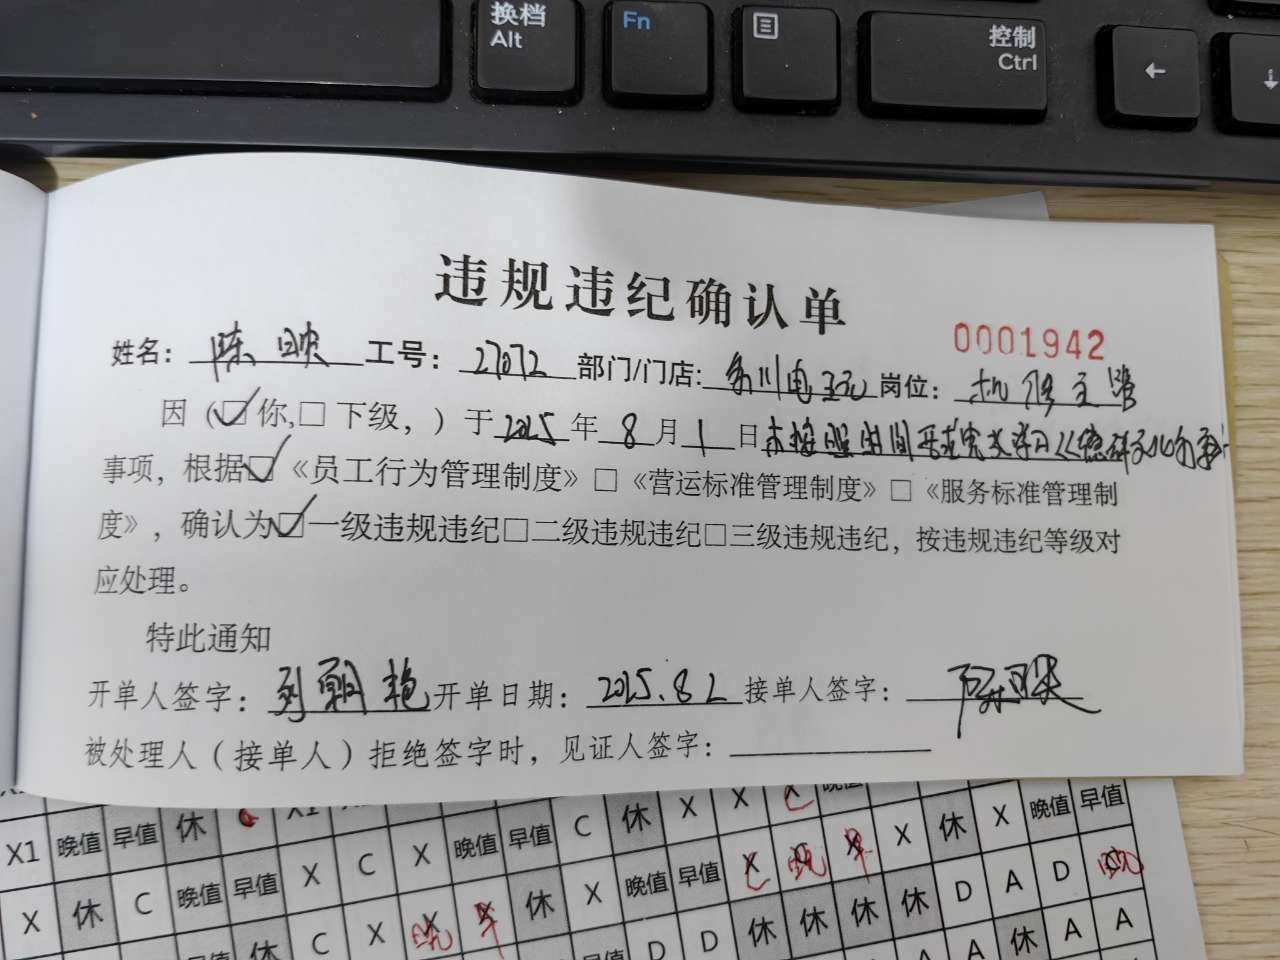 换档
Alt
Fn
控制
Ctrl
←
↓
违规违纪确认单
0001942
姓名：陈映 工号：27072 部门/门店：川电 岗位：机修主管
因（☑你,□下级，）于2025年8月1日未按照时间要求完成学习《德研文化
事项，根据☑《员工行为管理制度》□《营运标准管理制度》□《服务标准管理制
度》，确认为☑一级违规违纪□二级违规违纪□三级违规违纪，按违规违纪等级对
应处理。
特此通知
开单人签字：刘朝艳 开单日期：2025.8.2 接单人签字：陈映
被处理人（接单人）拒绝签字时，见证人签字：
X1 晚值 早值 休 X1 C X 晚值 早值 C 休 X X 晚值 X 休 X 晚值 早值
X 休 C 晚值 早值 X C X 晚 早 休 X 晚值 早值 晚 早 D A D 晚
休 C X D D 休 休 休 休 A A 休 A A